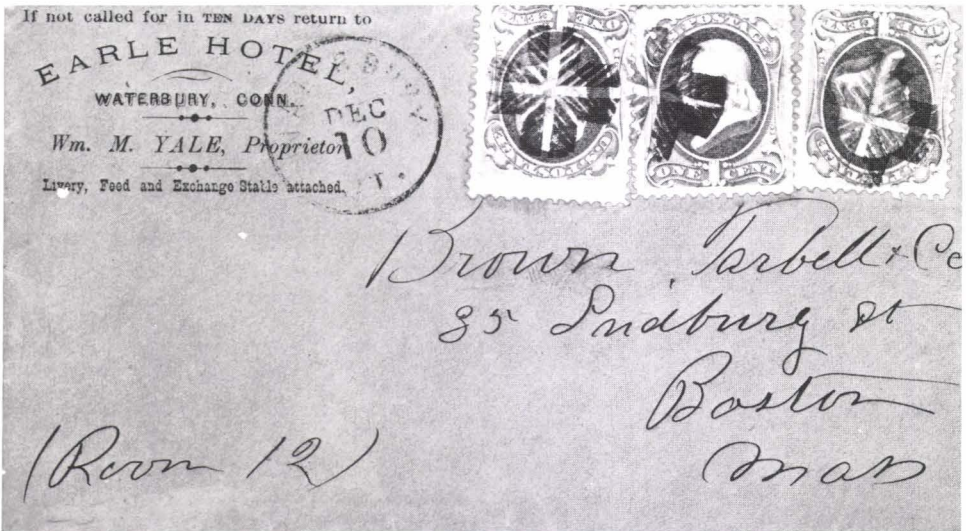 If not called for in TEN DAYS return to
EARLE HOTEL,
WATERBURY, CONN.
Wm. M. YALE, Proprietor
Livery, Feed and Exchange Stable attached.
DEC
10
POSTAGE
ONE CENT
Brown Tarbell & Co
35 St
Boston
Mass
(Room 12)